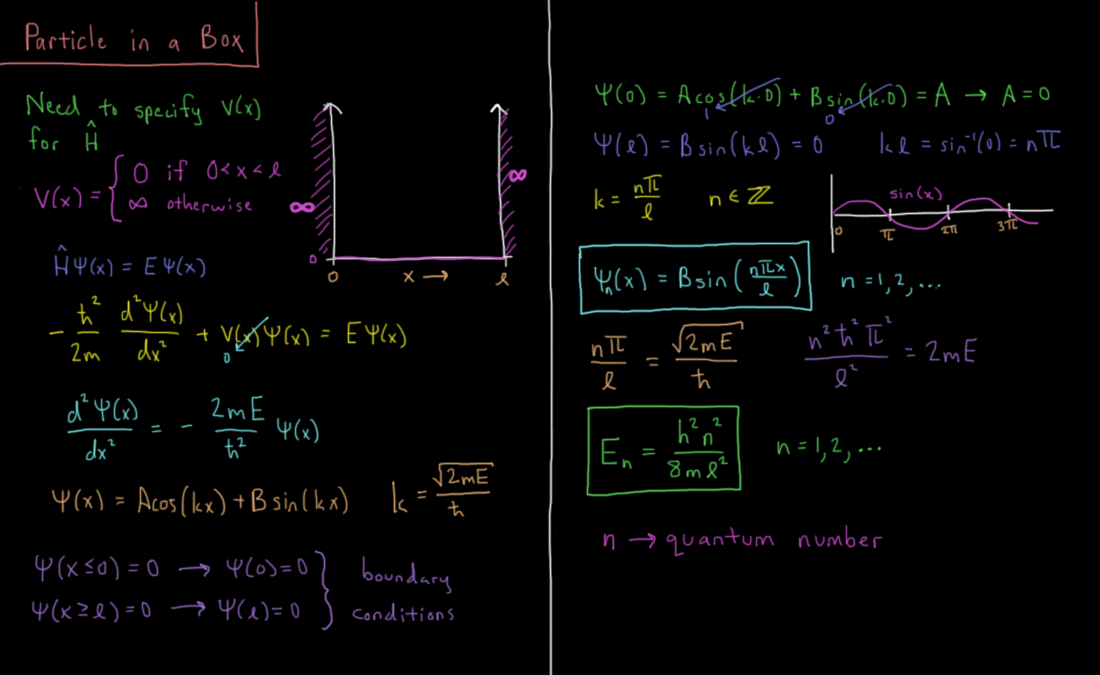 Particle in a Box
Need to specify V(x)
for Ĥ
V(x) = { 0 if 0<x<ℓ
∞ otherwise
∞
∞
0
0 x → ℓ
Ĥψ(x) = Eψ(x)
-ħ²/2m d²ψ(x)/dx² + V(x)ψ(x) = Eψ(x)
0
d²ψ(x)/dx² = - 2mE/ħ² ψ(x)
ψ(x) = Acos(kx)+Bsin(kx) k = √2mE/ħ
ψ(x≤0)=0 → ψ(0)=0 } boundary
ψ(x≥ℓ)=0 → ψ(ℓ)=0 conditions
ψ(0) = Acos(k·0) + Bsin(k·0) = A → A=0
1 0
ψ(ℓ) = Bsin(kℓ) = 0 kℓ = sin⁻¹(0) = nπ
k = nπ/ℓ n∈ℤ
sin(x)
0 π 2π 3π
ψₙ(x) = Bsin(nπx/ℓ) n=1,2,...
nπ/ℓ = √2mE/ħ n²ħ²π²/ℓ² = 2mE
Eₙ = h²n²/8mℓ² n=1,2,...
n → quantum number